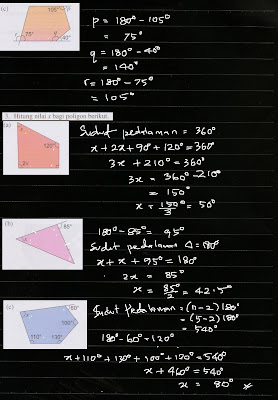 (c)
105° p
r 75° q 40°
p = 180° - 105°
= 75°
q = 180° - 40°
= 140°
r = 180° - 75°
= 105°
3. Hitung nilai x bagi poligon berikut.
(a)
120°
2x
Sudut pedalaman = 360°
x + 2x + 90° + 120° = 360°
3x + 210° = 360°
3x = 360° - 210°
= 150°
x = 150°/3 = 50°
(b)
85°
x
x
180° - 85° = 95°
Sudut pedalaman Δ = 180°
x + x + 95° = 180°
2x = 85°
x = 85/2 = 42.5°
(c)
60°
100°
x
110° 130°
Sudut Pedalaman = (n-2)180°
= (5-2)180°
= 540°
180° - 60° = 120°
x + 110° + 130° + 100° + 120° = 540°
x + 460° = 540°
x = 80°